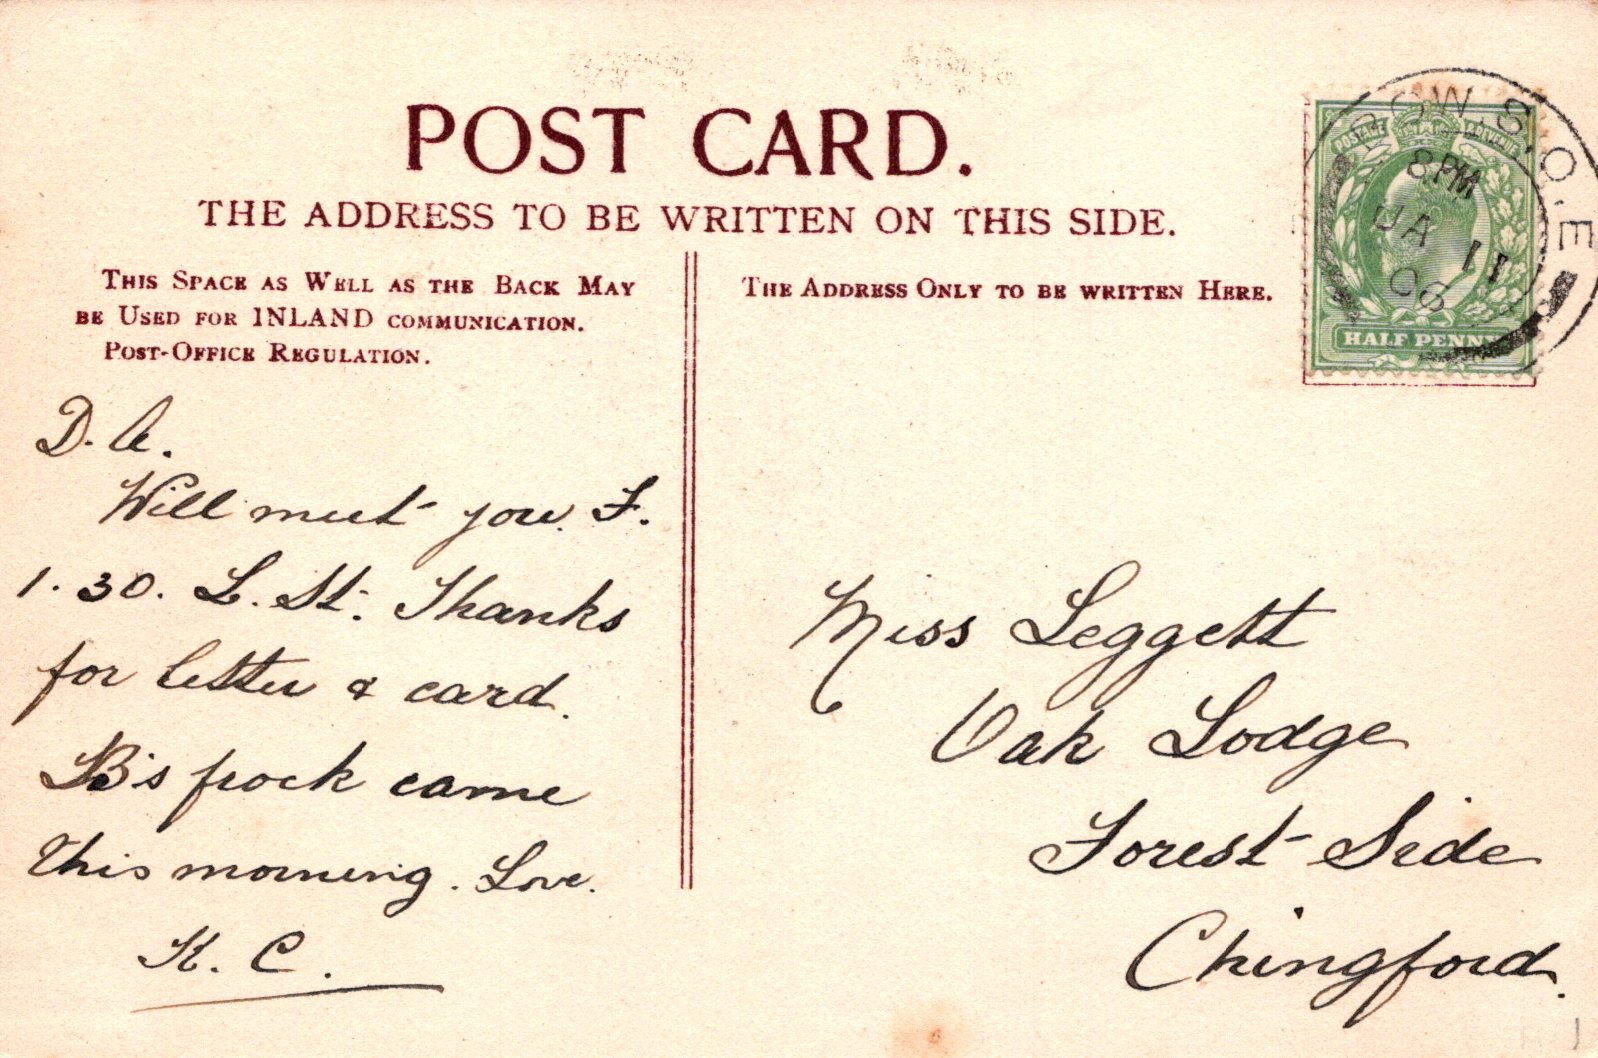 POST CARD.
THE ADDRESS TO BE WRITTEN ON THIS SIDE.
THIS SPACE AS WELL AS THE BACK MAY
BE USED FOR INLAND COMMUNICATION.
POST-OFFICE REGULATION.
THE ADDRESS ONLY TO BE WRITTEN HERE.
POSTAGE REVENUE
HALF PENNY
OW.S.O.E
8PM
JA 11
06
D. A.
Will meet you. F.
1.30. L. St. Thanks
for letter & card.
B's frock came
this morning. Love.
K. C.
Miss Leggett
Oak Lodge
Forest Side
Chingford.